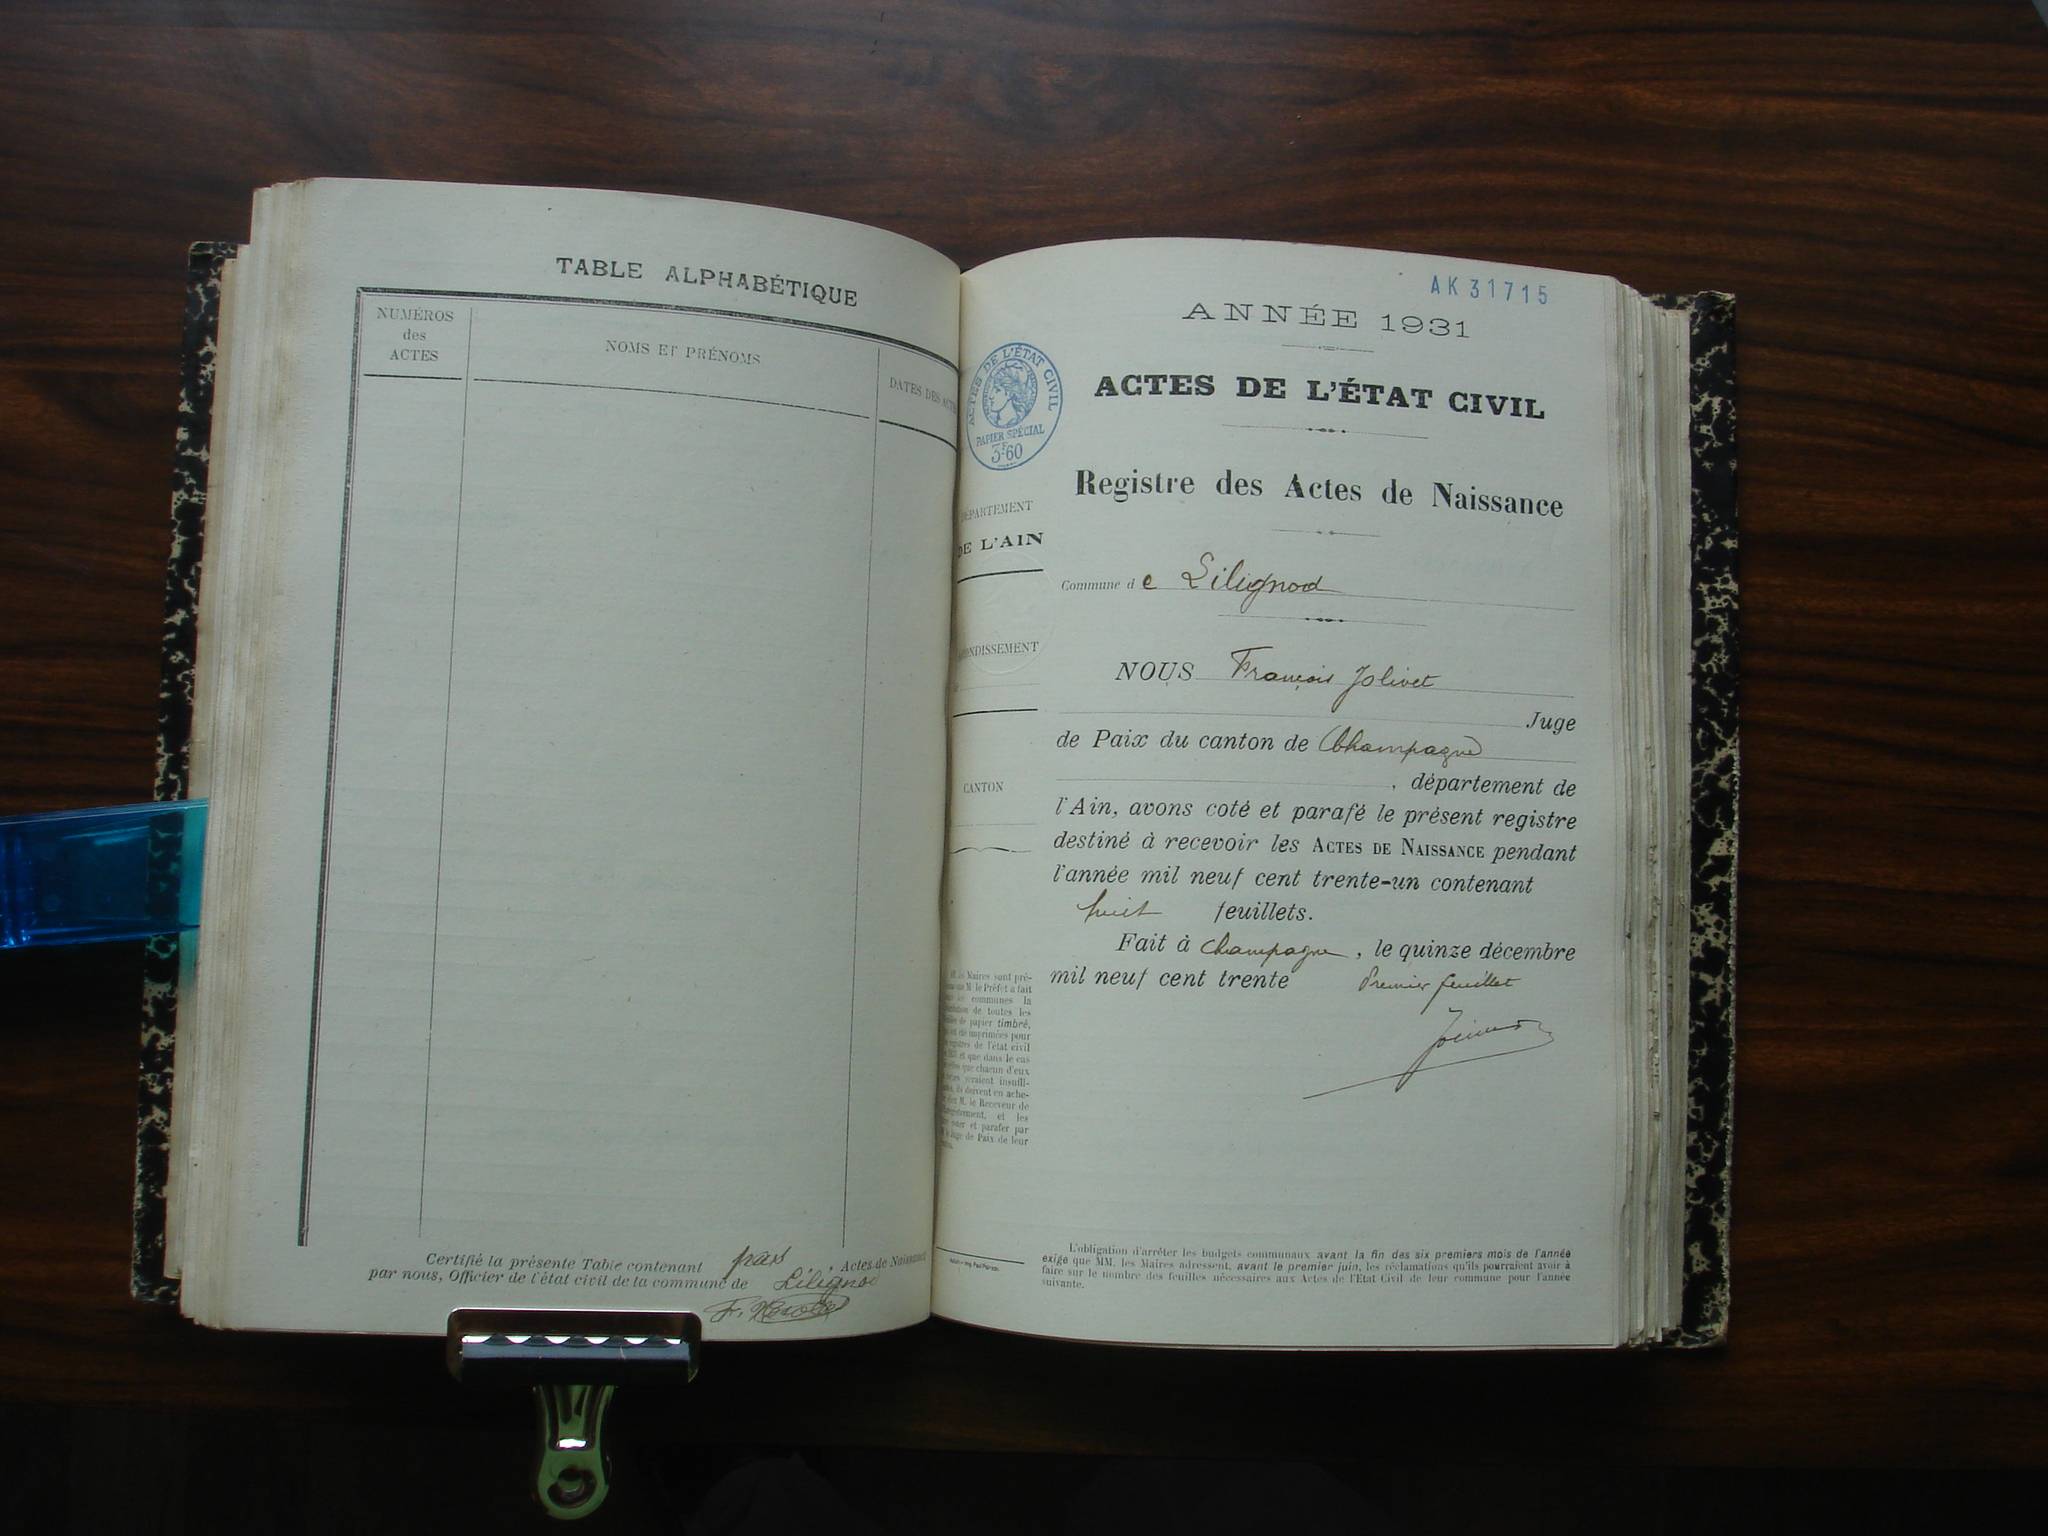 TABLE ALPHABÉTIQUE
NUMÉROS
des
ACTES
NOMS ET PRÉNOMS
DATES DES ACTES
Certifié la présente Table contenant pas Actes de Naissance
par nous, Officier de l'état civil de la commune de Lilignod
AK 31715
ANNÉE 1931
ACTES DE L'ÉTAT CIVIL
PAPIER SPÉCIAL
3F60
ACTES DE L'ÉTAT CIVIL
Registre des Actes de Naissance
DÉPARTEMENT
DE L'AIN
Commune de Lilignod
ARRONDISSEMENT
NOUS François Jolivet
Juge
de Paix du canton de Champagne
CANTON
, département de
l'Ain, avons coté et parafé le présent registre
destiné à recevoir les ACTES DE NAISSANCE pendant
l'année mil neuf cent trente-un contenant
huit feuillets.
Fait à Champagne, le quinze décembre
mil neuf cent trente Premier feuillet
Maires sont pré-
M. le Préfet a fait
communes la
de toutes les
de papier timbré,
été imprimées pour
registres de l'état civil
et que dans le cas
que chacun d'eux
seraient insuffi-
ils doivent en ache-
M. le Receveur de
et les
coter et parafer par
Juge de Paix de leur
L'obligation d'arrêter les budgets communaux avant la fin des six premiers mois de l'année
exige que MM. les Maires adressent, avant le premier juin, les réclamations qu'ils pourraient avoir à
faire sur le nombre des feuilles nécessaires aux Actes de l'Etat Civil de leur commune pour l'année
suivante.